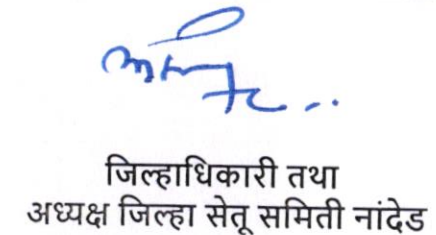 जिल्हाधिकारी तथा
अध्यक्ष जिल्हा सेतू समिती नांदेड